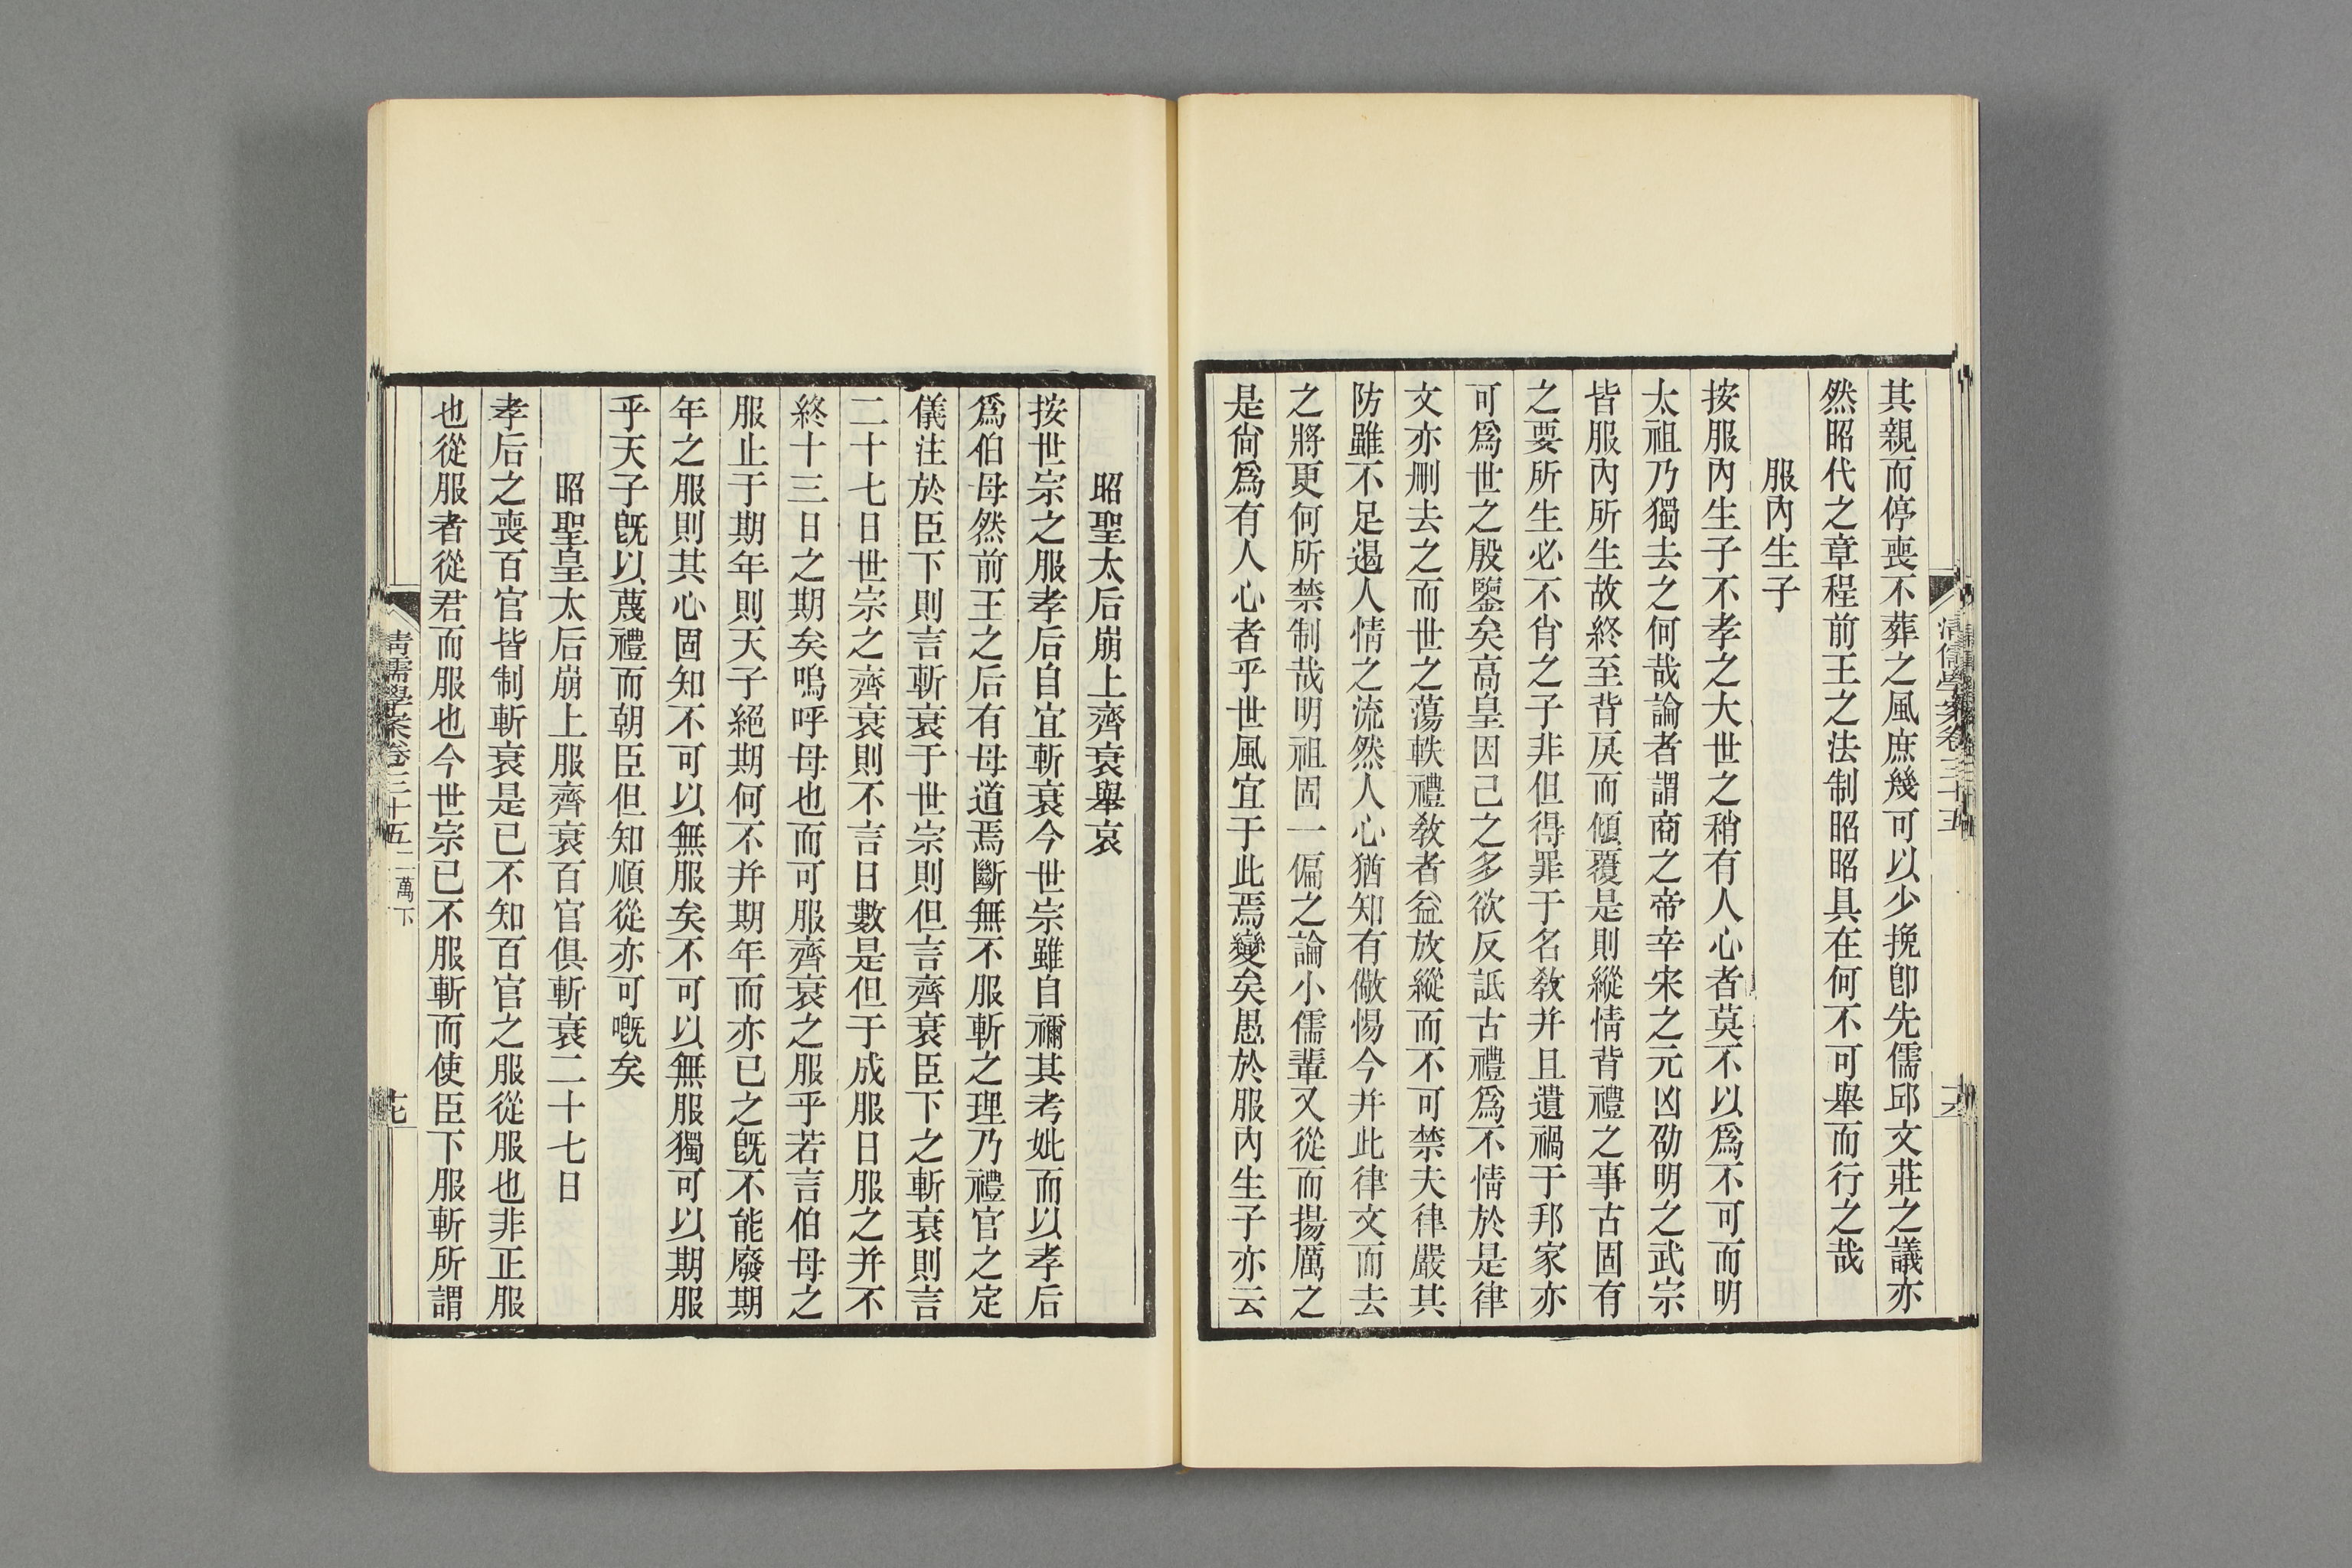 清儒學案卷三十五
其親而停喪不葬之風庶幾可以少挽卽先儒邱文莊之議亦
然昭代之章程前王之法制昭昭具在何不可舉而行之哉
服內生子
按服內生子不孝之大世之稍有人心者莫不以爲不可而明
太祖乃獨去之何哉論者謂商之帝辛宋之元凶劭明之武宗
皆服內所生故終至背戾而傾覆是則縱情背禮之事古固有
之要所生必不肖之子非但得罪于名敎幷且遺禍于邦家亦
可爲世之殷鑒矣高皇因己之多欲反詆古禮爲不情於是律
文亦刪去之而世之蕩軼禮敎者益放縱而不可禁夫律嚴其
防雖不足遏人情之流然人心猶知有儆惕今幷此律文而去
之將更何所禁制哉明祖固一偏之論小儒輩又從而揚厲之
是尙爲有人心者乎世風宜于此焉變矣愚於服內生子亦云
昭聖太后崩上齊衰舉哀
按世宗之服孝后自宜斬衰今世宗雖自禰其考妣而以孝后
爲伯母然前王之后有母道焉斷無不服斬之理乃禮官之定
儀注於臣下則言斬衰于世宗則但言齊衰臣下之斬衰則言
二十七日世宗之齊衰則不言日數是但于成服日服之幷不
終十三日之期矣嗚呼母也而可服齊衰之服乎若言伯母之
服止于期年則天子絕期何不幷期年而亦已之旣不能廢期
年之服則其心固知不可以無服矣不可以無服獨可以期服
乎天子旣以蔑禮而朝臣但知順從亦可嘅矣
昭聖皇太后崩上服齊衰百官俱斬衰二十七日
孝后之喪百官皆制斬衰是已不知百官之服從服也非正服
也從服者從君而服也今世宗已不服斬而使臣下服斬所謂
清儒學案卷三十五 二萬下